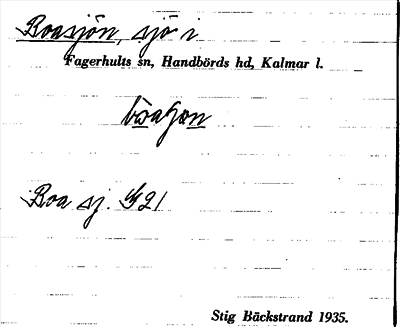 Boasjön, sjö i
Fagerhults sn, Handbörds hd, Kalmar l.
Boa sj. G21
Stig Bäckstrand 1935.